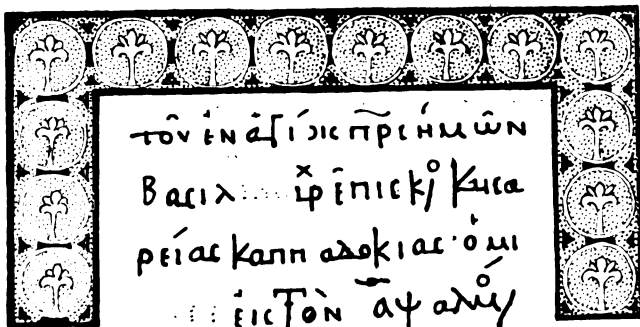 τοῦ ἐν ἁγίοις πρς ἡμῶν
Βασιλ ..... ἀρχιεπισκο Καισα
ρείας καππαδοκίας· ὁμι
εἰς τὸν α ψαλμο